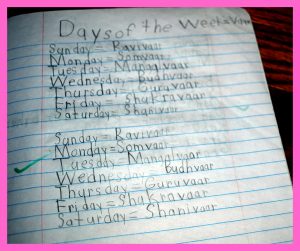 Days of the Week=Vaar
Sunday = Ravivaar
Monday = Somvaar
Tuesday = Mangalvaar
Wednesday = Budhvaar
Thursday = Guruvaar
Friday = Shukravaar
Saturday = Shanivaar
Sunday = Ravivaar
Monday = Somvaar
Tuesday Mangalvaar
Wednesday Budhvaar
Thursday = Guruvaar
Friday = Shukravaar
Saturday = Shanivaar